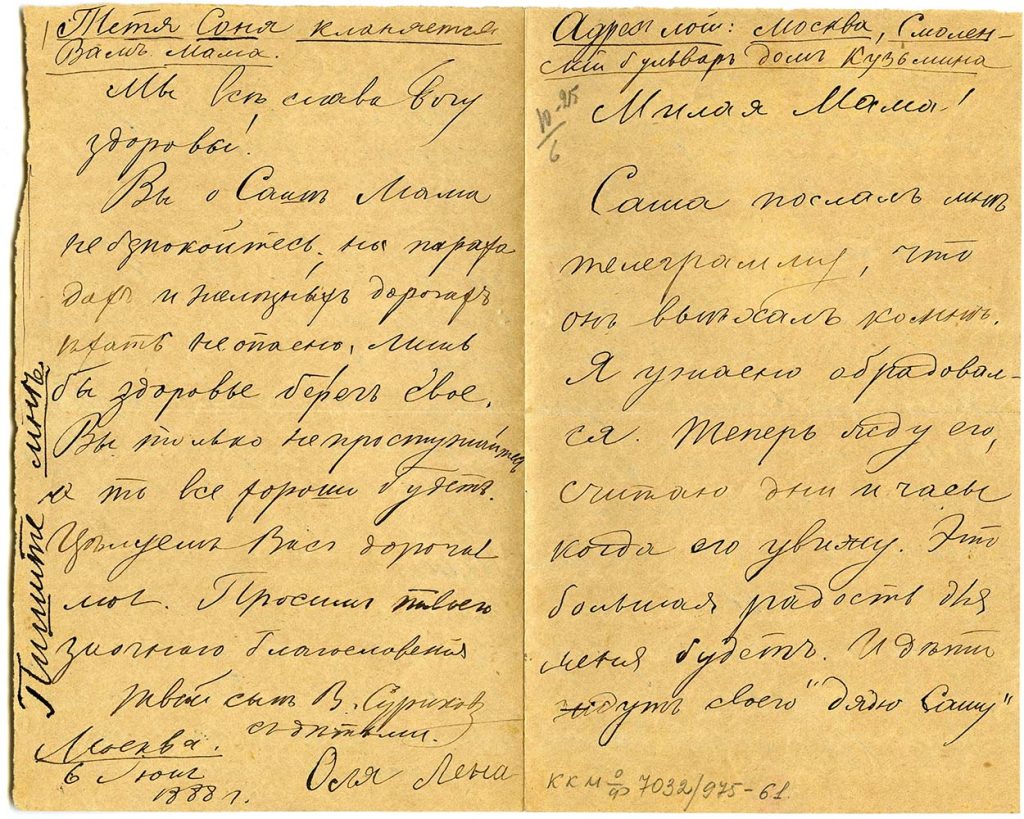 Адресъ мой: Москва, Смолен-
скій бульваръ домъ Кузьмина
10-25
6
Милая Мама!
Саша послалъ мнѣ
телеграмму, что
онъ выѣхалъ ко мнѣ.
Я ужасно обрадовал-
ся. Теперь жду его,
считаю дни и часы
когда его увижу. Это
большая радость для
меня будетъ. И дѣти
ждутъ своего "дядю Сашу"
ККМ о/ф 7032/975-61.
Тетя Соня кланяется
Вамъ мама.
Мы всѣ слава Богу
здоровы!
Вы о Сашѣ Мама
не безпокойтесь, на парахо
дахъ и желѣзныхъ дорогахъ
ѣхать неопасно, лишь
бы здоровье берегъ свое.
Вы только не простужайтесь
а то все хорошо будетъ.
Цѣлуемъ Васъ дорогая
моя. Просимъ твоего
заочнаго благословенія
твой сынъ В. Суриковъ
съ дѣтьми.
Оля Лена
Москва.
6 Іюня
1888 г.
Пишите мнѣ.